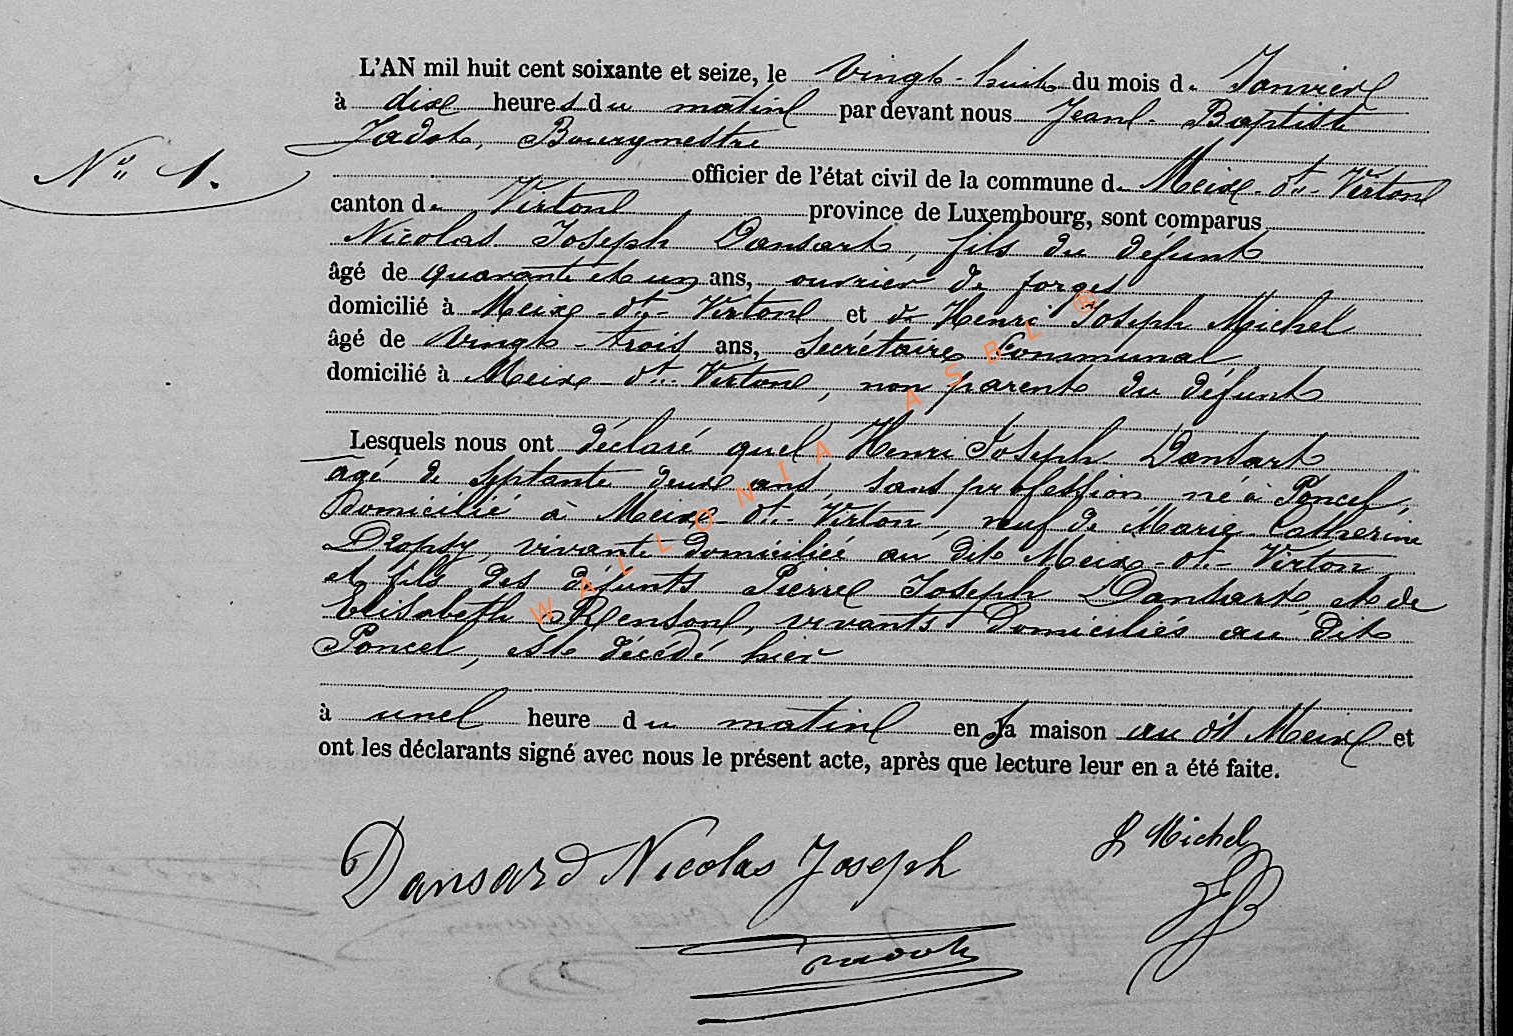 L'AN mil huit cent soixante et seize, le vingt-huit du mois de Janvier
à dix heures du matin par devant nous Jean-Baptiste
Jadot, Bourgmestre
N° 1.
officier de l'état civil de la commune de Meix-dt-Virton
canton de Virton province de Luxembourg, sont comparus
Nicolas Joseph Dansart, fils du défunt
âgé de quarante et un ans, ouvrier de forges
domicilié à Meix-dt-Virton et de Henri Joseph Michel
âgé de vingt-trois ans, Secrétaire Communal
domicilié à Meix-dt-Virton, non parent du défunt
Lesquels nous ont déclaré que Henri Joseph Dansart
agé de septante deux ans, sans profession né à Poncel,
Domicilié à Meix-dt-Virton, veuf de Marie Catherine
Dropsy, vivante domiciliée au dit Meix-dt-Virton
et fils des défunts Pierre Joseph Dansart et de
Elisabeth Renson, vivants Domiciliés au dit
Poncel, est décédé hier
à une heure du matin en sa maison au dt Meix et
ont les déclarants signé avec nous le présent acte, après que lecture leur en a été faite.
Dansard Nicolas Joseph
Michel
Jadot
WALLONIA ASBL ®